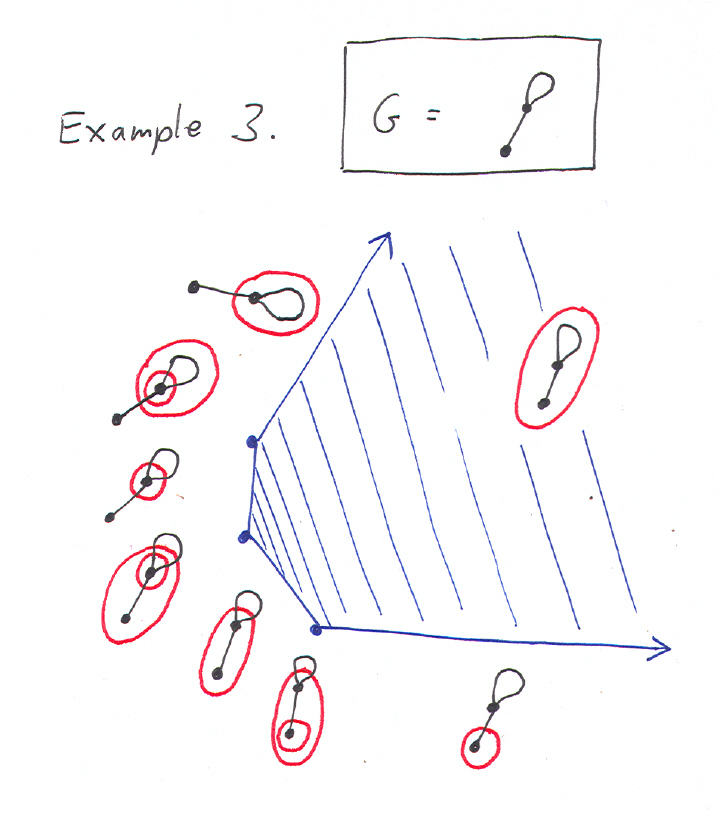 Example 3.
G =